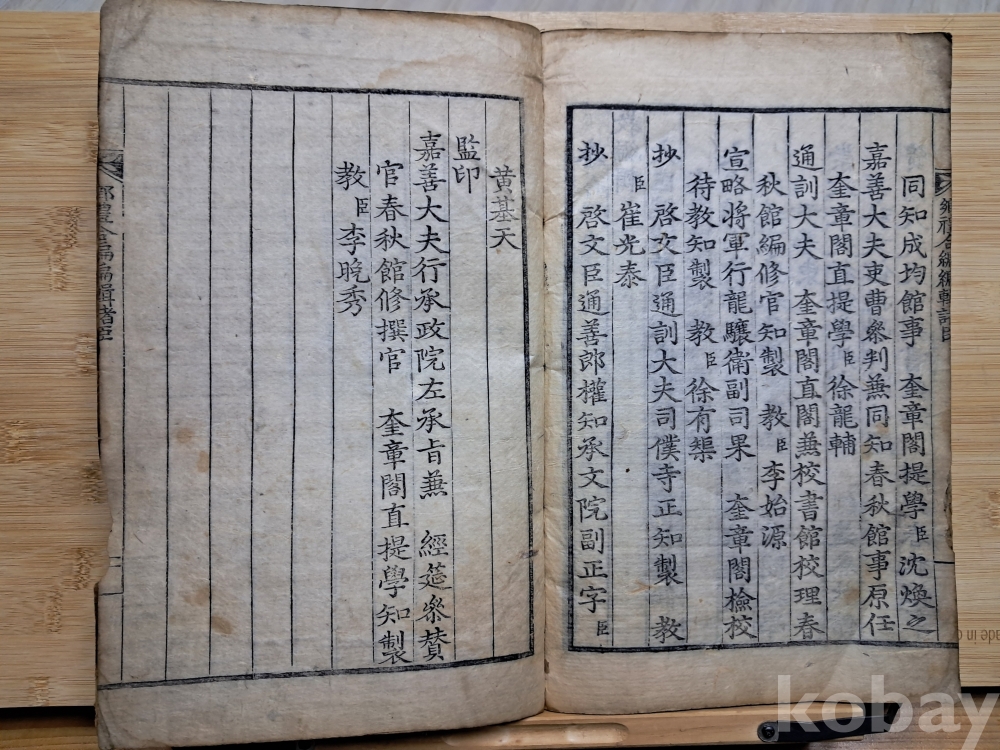 同知成均館事 奎章閣提學臣沈煥之
嘉善大夫吏曹叅判兼同知春秋館事原任
奎章閣直提學臣徐龍輔
通訓大夫 奎章閣直閣兼校書館校理春
秋館編修官知製 教臣李始源
宣略將軍行龍驤衛副司果 奎章閣檢校
待教知製 教臣徐有榘
抄 啓文臣通訓大夫司僕寺正知製 教
臣崔光泰
抄 啓文臣通善郎權知承文院副正字臣
黃基天
監印
嘉善大夫行承政院左承旨兼 經筵叅贊
官春秋館修撰官 奎章閣直提學知製
教臣李晚秀
鄉禮合編編輯諸臣
kobay